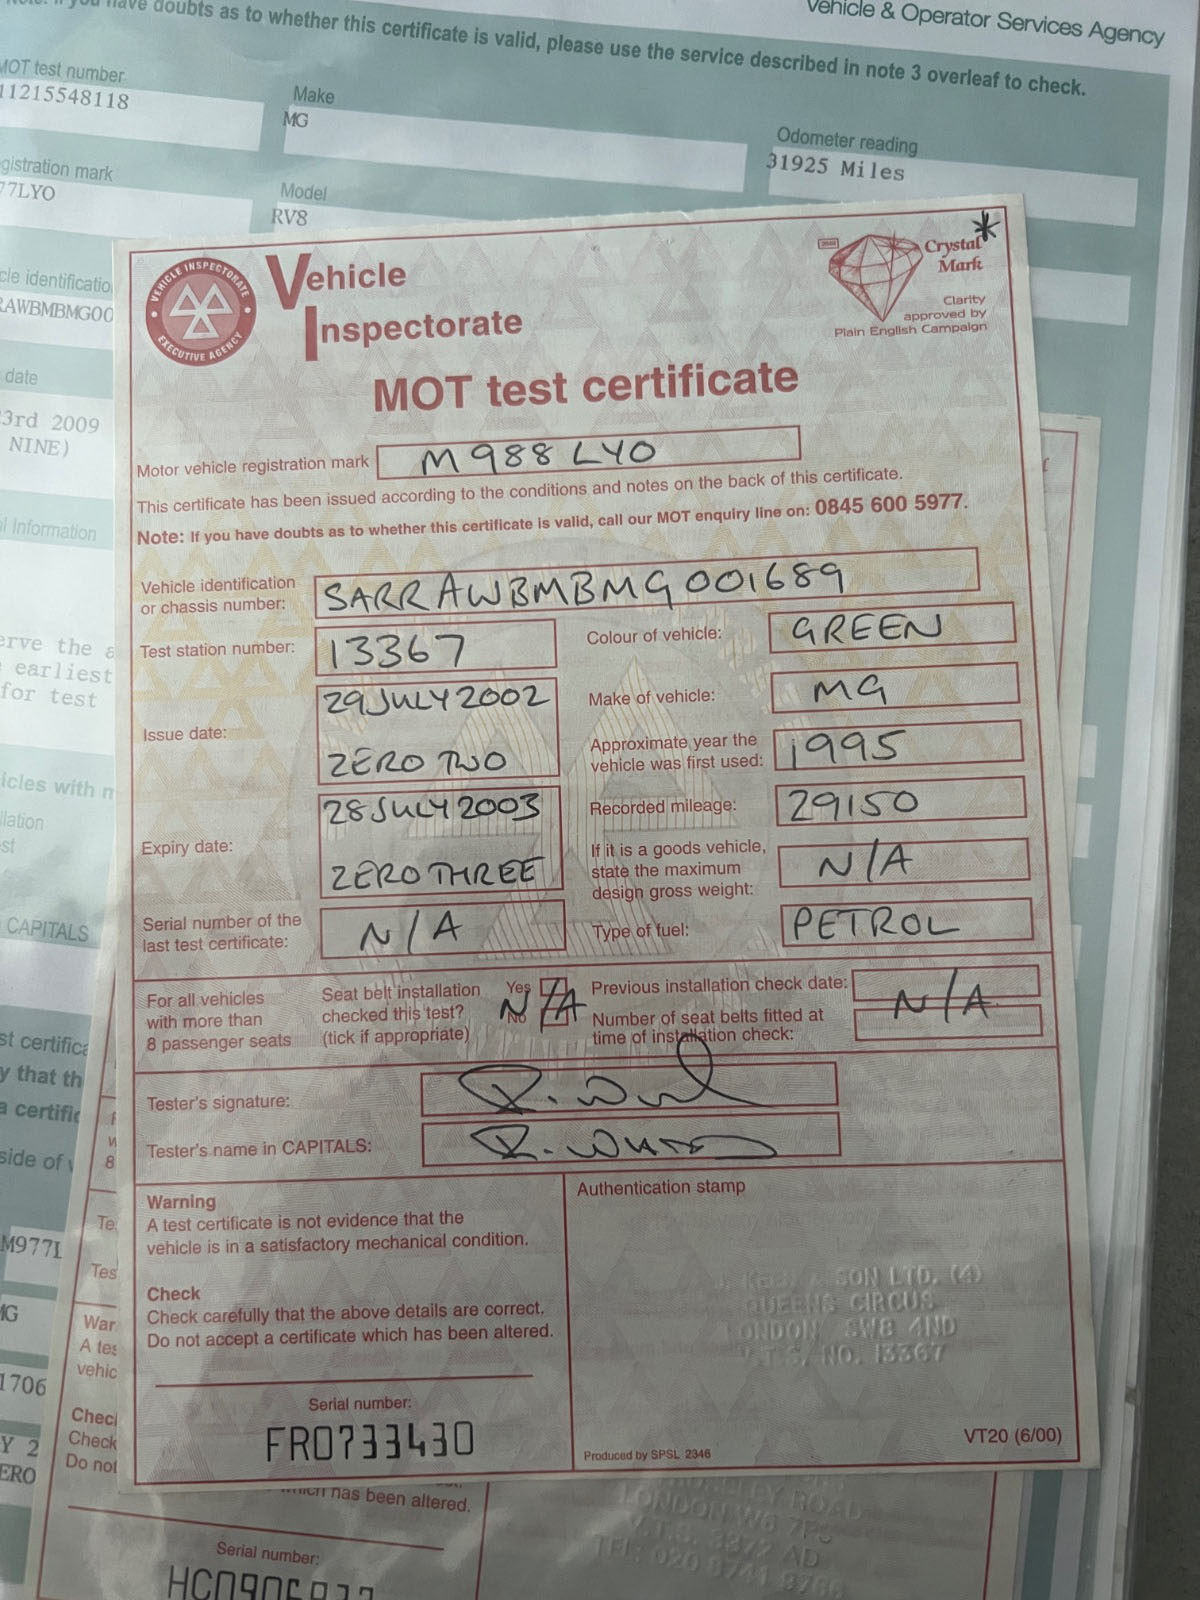 Vehicle & Operator Services Agency
have doubts as to whether this certificate is valid, please use the service described in note 3 overleaf to check.
MOT test number
11215548118
Make
MG
Odometer reading
31925 Miles
gistration mark
77LYO
Model
RV8
cle identificatio
RAWBMBMG00
date
3rd 2009
NINE)
l Information
erve the a
earliest
for test
icles with m
llation
st
CAPITALS
st certifica
y that th
a certific
side of v
M977L
MG
1706
Y 2
ERO
VEHICLE INSPECTORATE
EXECUTIVE AGENCY
Vehicle
Inspectorate
Crystal
Mark
*
Clarity
approved by
Plain English Campaign
MOT test certificate
Motor vehicle registration mark M988 LYO
This certificate has been issued according to the conditions and notes on the back of this certificate.
Note: If you have doubts as to whether this certificate is valid, call our MOT enquiry line on: 0845 600 5977.
Vehicle identification
or chassis number: SARRAWBMBMG001689
Test station number: 13367
Colour of vehicle: GREEN
Issue date: 29 JULY 2002
ZERO TWO
Make of vehicle: MG
Approximate year the
vehicle was first used: 1995
Expiry date: 28 JULY 2003
ZERO THREE
Recorded mileage: 29150
If it is a goods vehicle,
state the maximum
design gross weight: N/A
Serial number of the
last test certificate: N/A
Type of fuel: PETROL
For all vehicles
with more than
8 passenger seats
Seat belt installation
checked this test?
(tick if appropriate)
Yes
No
N/A
Previous installation check date:
Number of seat belts fitted at
time of installation check:
N/A
Tester's signature:
Tester's name in CAPITALS:
Warning
A test certificate is not evidence that the
vehicle is in a satisfactory mechanical condition.
Check
Check carefully that the above details are correct.
Do not accept a certificate which has been altered.
Serial number:
FR0733430
Authentication stamp
SON LTD. (4)
QUEENS CIRCUS
LONDON SW8 4ND
V.T.S. NO. 13367
Produced by SPSL 2346
VT20 (6/00)
8
Te
Tes
War
A tes
vehic
Chec
Check
Do not
which has been altered.
Serial number:
ROAD
LONDON W6
V.T.S. 3372 AD
TEL: 020 8741